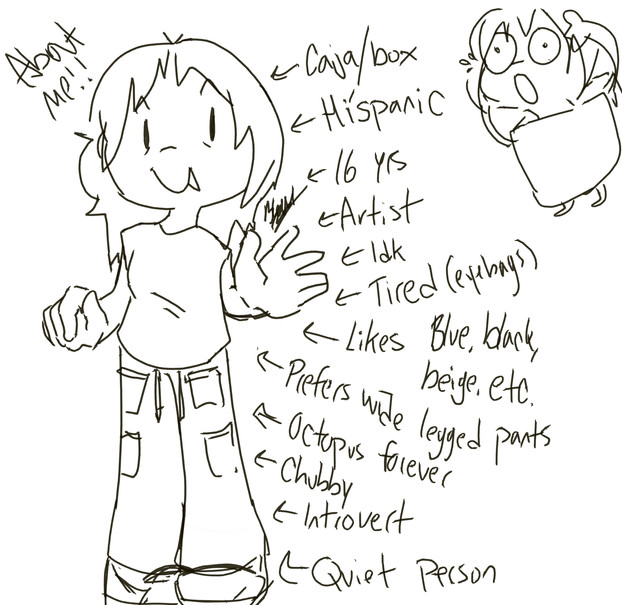 About
me!!
Caja/box
Hispanic
16 yrs
Artist
Idk
Tired (eyebags)
Likes Blue, black,
beige, etc.
Prefers wide legged pants
Octopus forever
Chubby
Introvert
Quiet person